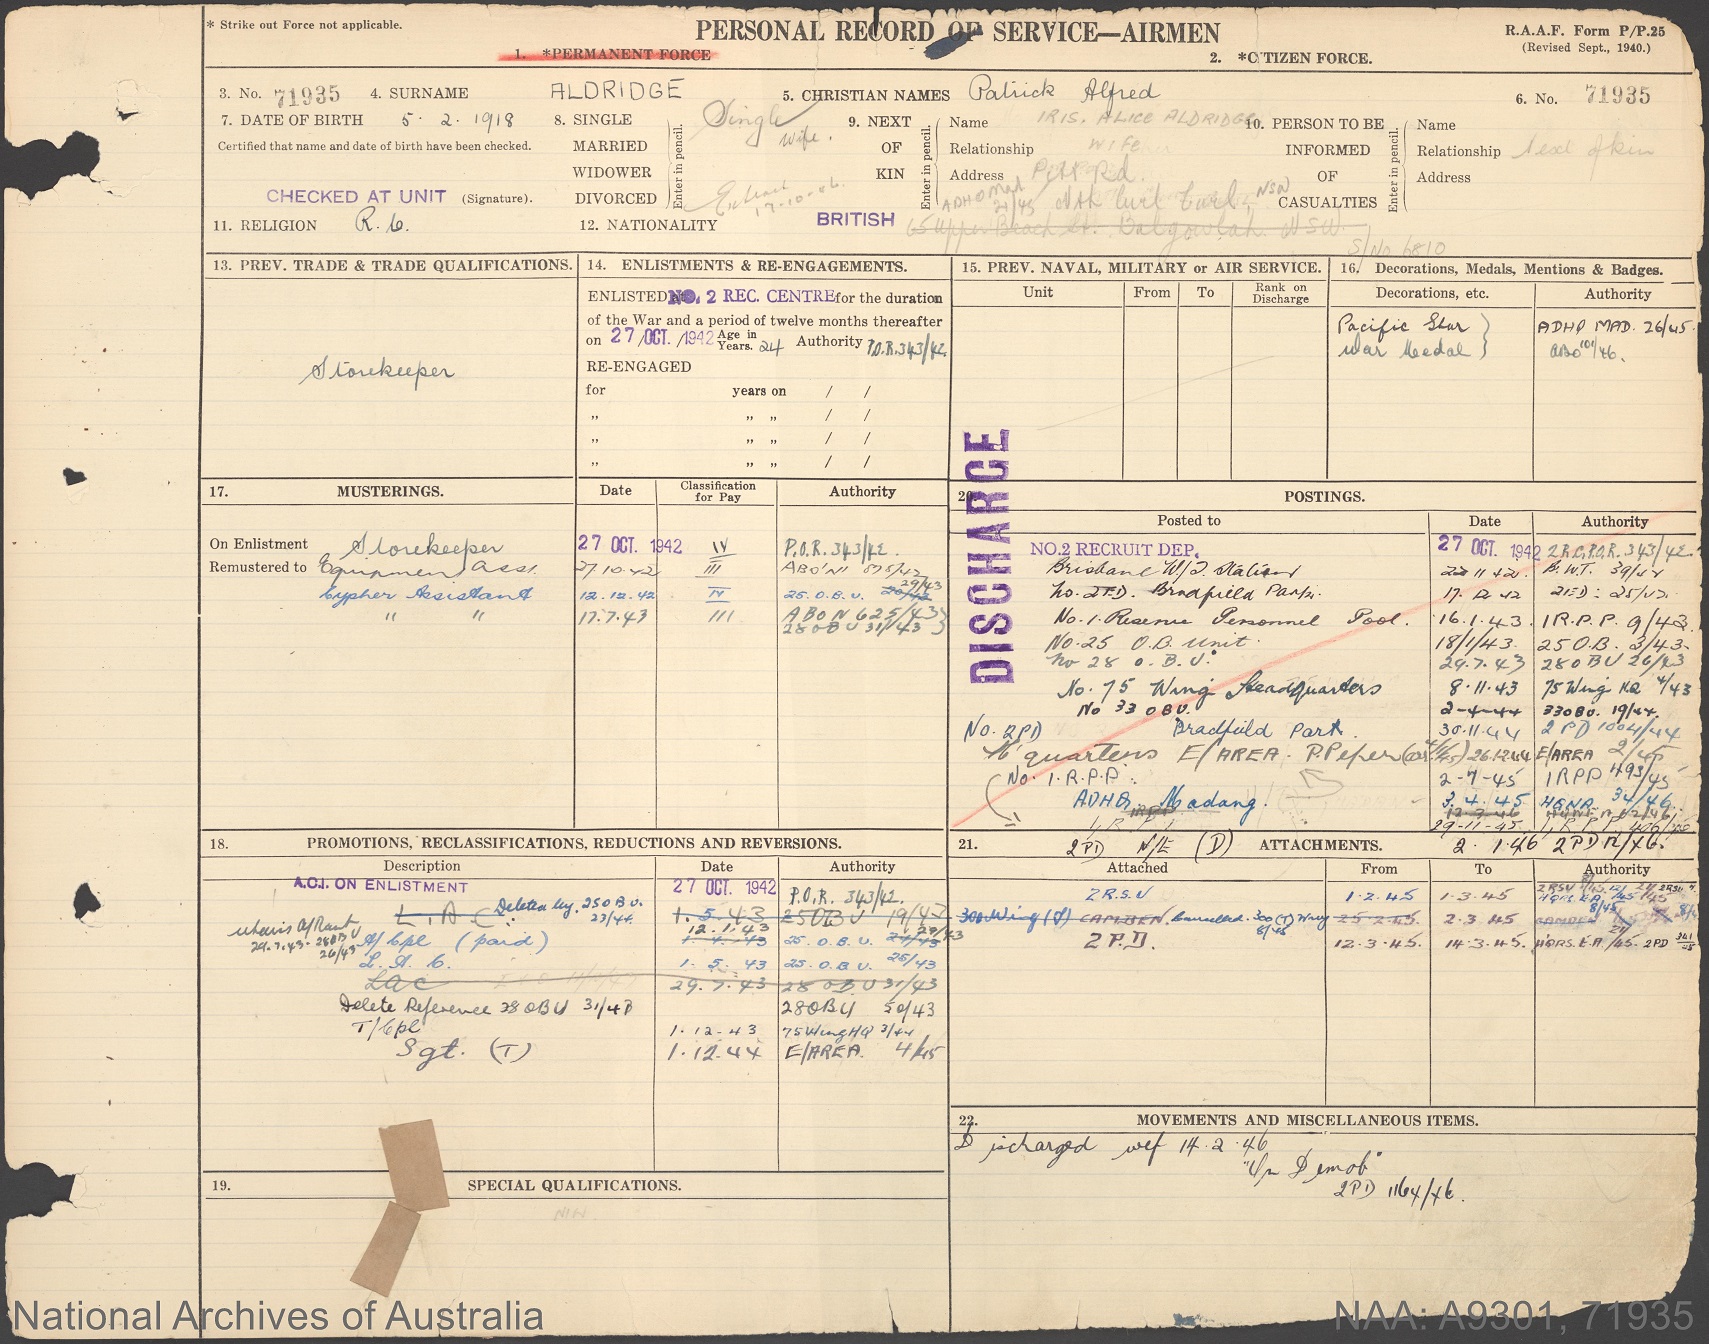 * Strike out Force not applicable.
PERSONAL RECORD OF SERVICE—AIRMEN
R.A.A.F. Form P/P.25
(Revised Sept., 1940.)
1. *PERMANENT FORCE
2. *CITIZEN FORCE.
3. No. 71935 4. SURNAME ALDRIDGE 5. CHRISTIAN NAMES Patrick Alfred 6. No. 71935
7. DATE OF BIRTH 5. 2. 1918
Certified that name and date of birth have been checked.
CHECKED AT UNIT (Signature).
8. SINGLE
MARRIED
WIDOWER
DIVORCED
Enter in pencil.
Single
Wife.
17-10-
9. NEXT
OF
KIN
Enter in pencil.
Name IRIS. ALICE ALDRIDGE
Relationship WIFE
Address Pitt Rd.
Nth Curl Curl, NSW
65 Upper Beach St. Balgowlah NSW
S/No 6810
10. PERSON TO BE
INFORMED
OF
CASUALTIES
Enter in pencil.
Name
Relationship Next of kin
Address
11. RELIGION R.C.
12. NATIONALITY BRITISH
13. PREV. TRADE & TRADE QUALIFICATIONS.
Storekeeper
14. ENLISTMENTS & RE-ENGAGEMENTS.
ENLISTED at NO. 2 REC. CENTRE for the duration
of the War and a period of twelve months thereafter
on 27 OCT. 1942 Age in Years. 24 Authority P.O.R.343/42.
RE-ENGAGED
for years on / /
„ „ „ / /
„ „ „ / /
„ „ „ / /
15. PREV. NAVAL, MILITARY or AIR SERVICE.
Unit From To Rank on Discharge
16. Decorations, Medals, Mentions & Badges.
Decorations, etc. Authority
Pacific Star } ADHQ MAD. 26/45.
War Medal } ABO 101/46.
17. MUSTERINGS. Date Classification for Pay Authority
On Enlistment Storekeeper 27 OCT. 1942 IV P.O.R. 343/42.
Remustered to Equipment Asst. 27.10.42 III ABO N
Cypher Assistant 12.12.42 IV 25. O.B.U. 29/43
" " 17.7.43 III ABO N 625/43 }
28 OBU 31/43 }
DISCHARGE
20. POSTINGS.
Posted to Date Authority
NO.2 RECRUIT DEP. 27 OCT. 1942 2 R.C, P.O.R. 343/42.
Brisbane W/T Station 22 11 42. B.W.T. 39/42
No. 2 E.D. Bradfield Park. 17. 12 42 2 ED: 25/42.
No. 1. Reserve Personnel Pool. 16.1.43. 1 R.P.P. 9/43
No. 25 O.B. Unit 18/1/43. 25 O.B. 3/43.
No 28 O.B.U. 29.7.43 28 OBU 26/43
No. 75 Wing Headquarters 8.11.43 75 Wing HQ 4/43
No 33 OBU. 2-4-44 33 OBU. 19/44.
No. 2PD Bradfield Park. 30.11.44 2 PD 1004/44
H'quarters E/AREA. P.Pepper 26.12.44 E/AREA 2/45
No. 1.R.P.P. 2-7-45 1RPP 493/45
ADHQ Madang. 3.4.45 HQNA 34/46
1.R.P.P. 29-11-45 1.R.P.P.
2PD N/E (D) 2.1.46 2PD 12/46.
18. PROMOTIONS, RECLASSIFICATIONS, REDUCTIONS AND REVERSIONS.
Description Date Authority
A.C.1. ON ENLISTMENT 27 OCT. 1942 P.O.R. 343/42.
L.A.C. Deleted by. 25 OBU. 23/44 1.5.43 25 OBU 19/43
A/Cpl (paid) 12.1.43 25. O.B.U. 29/43
29.7.43. 28 OBU 26/43
L.A.C. 1. 5. 43 25. O.B.U. 25/43
LAC 29.7.43 28 OBU 31/43
Delete Reference 28 OBU 31/43 28 OBU 50/43
T/Cpl 1.12.43 75 Wing HQ 3/44
Sgt. (T) 1.12.44 E/AREA. 4/45
21. ATTACHMENTS.
Attached From To Authority
2.R.S.U 1.2.45 1.3.45
300 Wing (T) CAMDEN Cancelled. 300 (T) Wing 8/45 25.2.45. 2.3.45 CAMDEN
2 P.D. 12.3.45. 14.3.45. HQRS. E.A 2PD 341/45
22. MOVEMENTS AND MISCELLANEOUS ITEMS.
Discharged wef 14.2.46
"On Demob"
2PD 1164/46.
19. SPECIAL QUALIFICATIONS.
National Archives of Australia
NAA: A9301, 71935